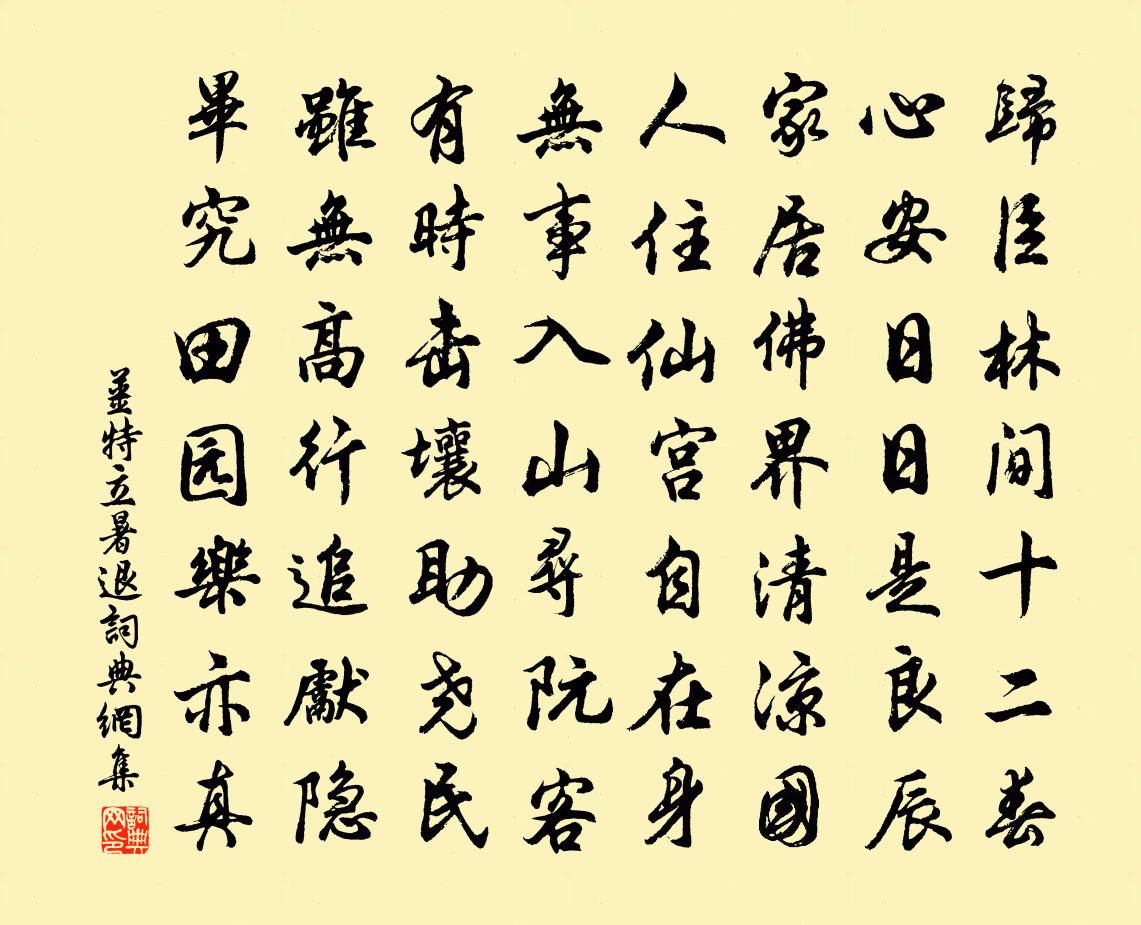 歸臣林间十二春
心安日日是良辰
家居佛界清凉國
人住仙宫自在身
無事入山尋阮客
有時击壤助尧民
雖無高行追獻隐
畢究田园樂亦真
薑特立暑退詞典網集
詞典网印